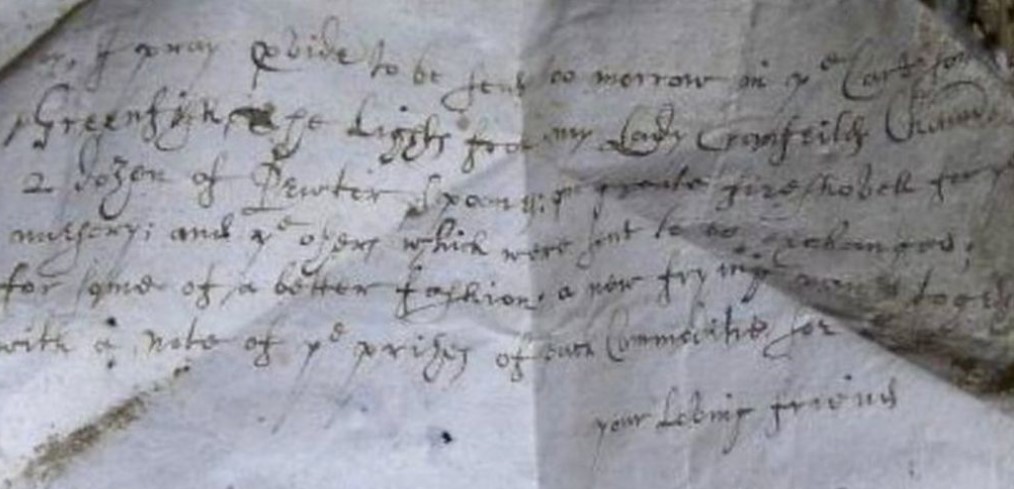 I pray pvide to be sent too morrow in ye Cart some
Greenfish, The Lights from my Lady Cranfeilds Cham
2 dozen of Pewter spoons: greate fireshovell for ye
nursery; and ye others which were sent to be exchanged
for some of a better fashion, a new frying pan together
with a note of ye prises of such Commodities for
your loving friend